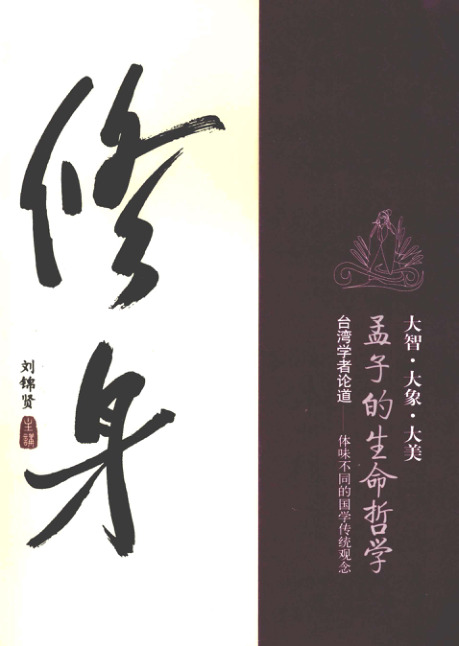 修身
刘锦贤
主讲
大智·大象·大美
孟子的生命哲学
台湾学者论道——体味不同的国学传统观念